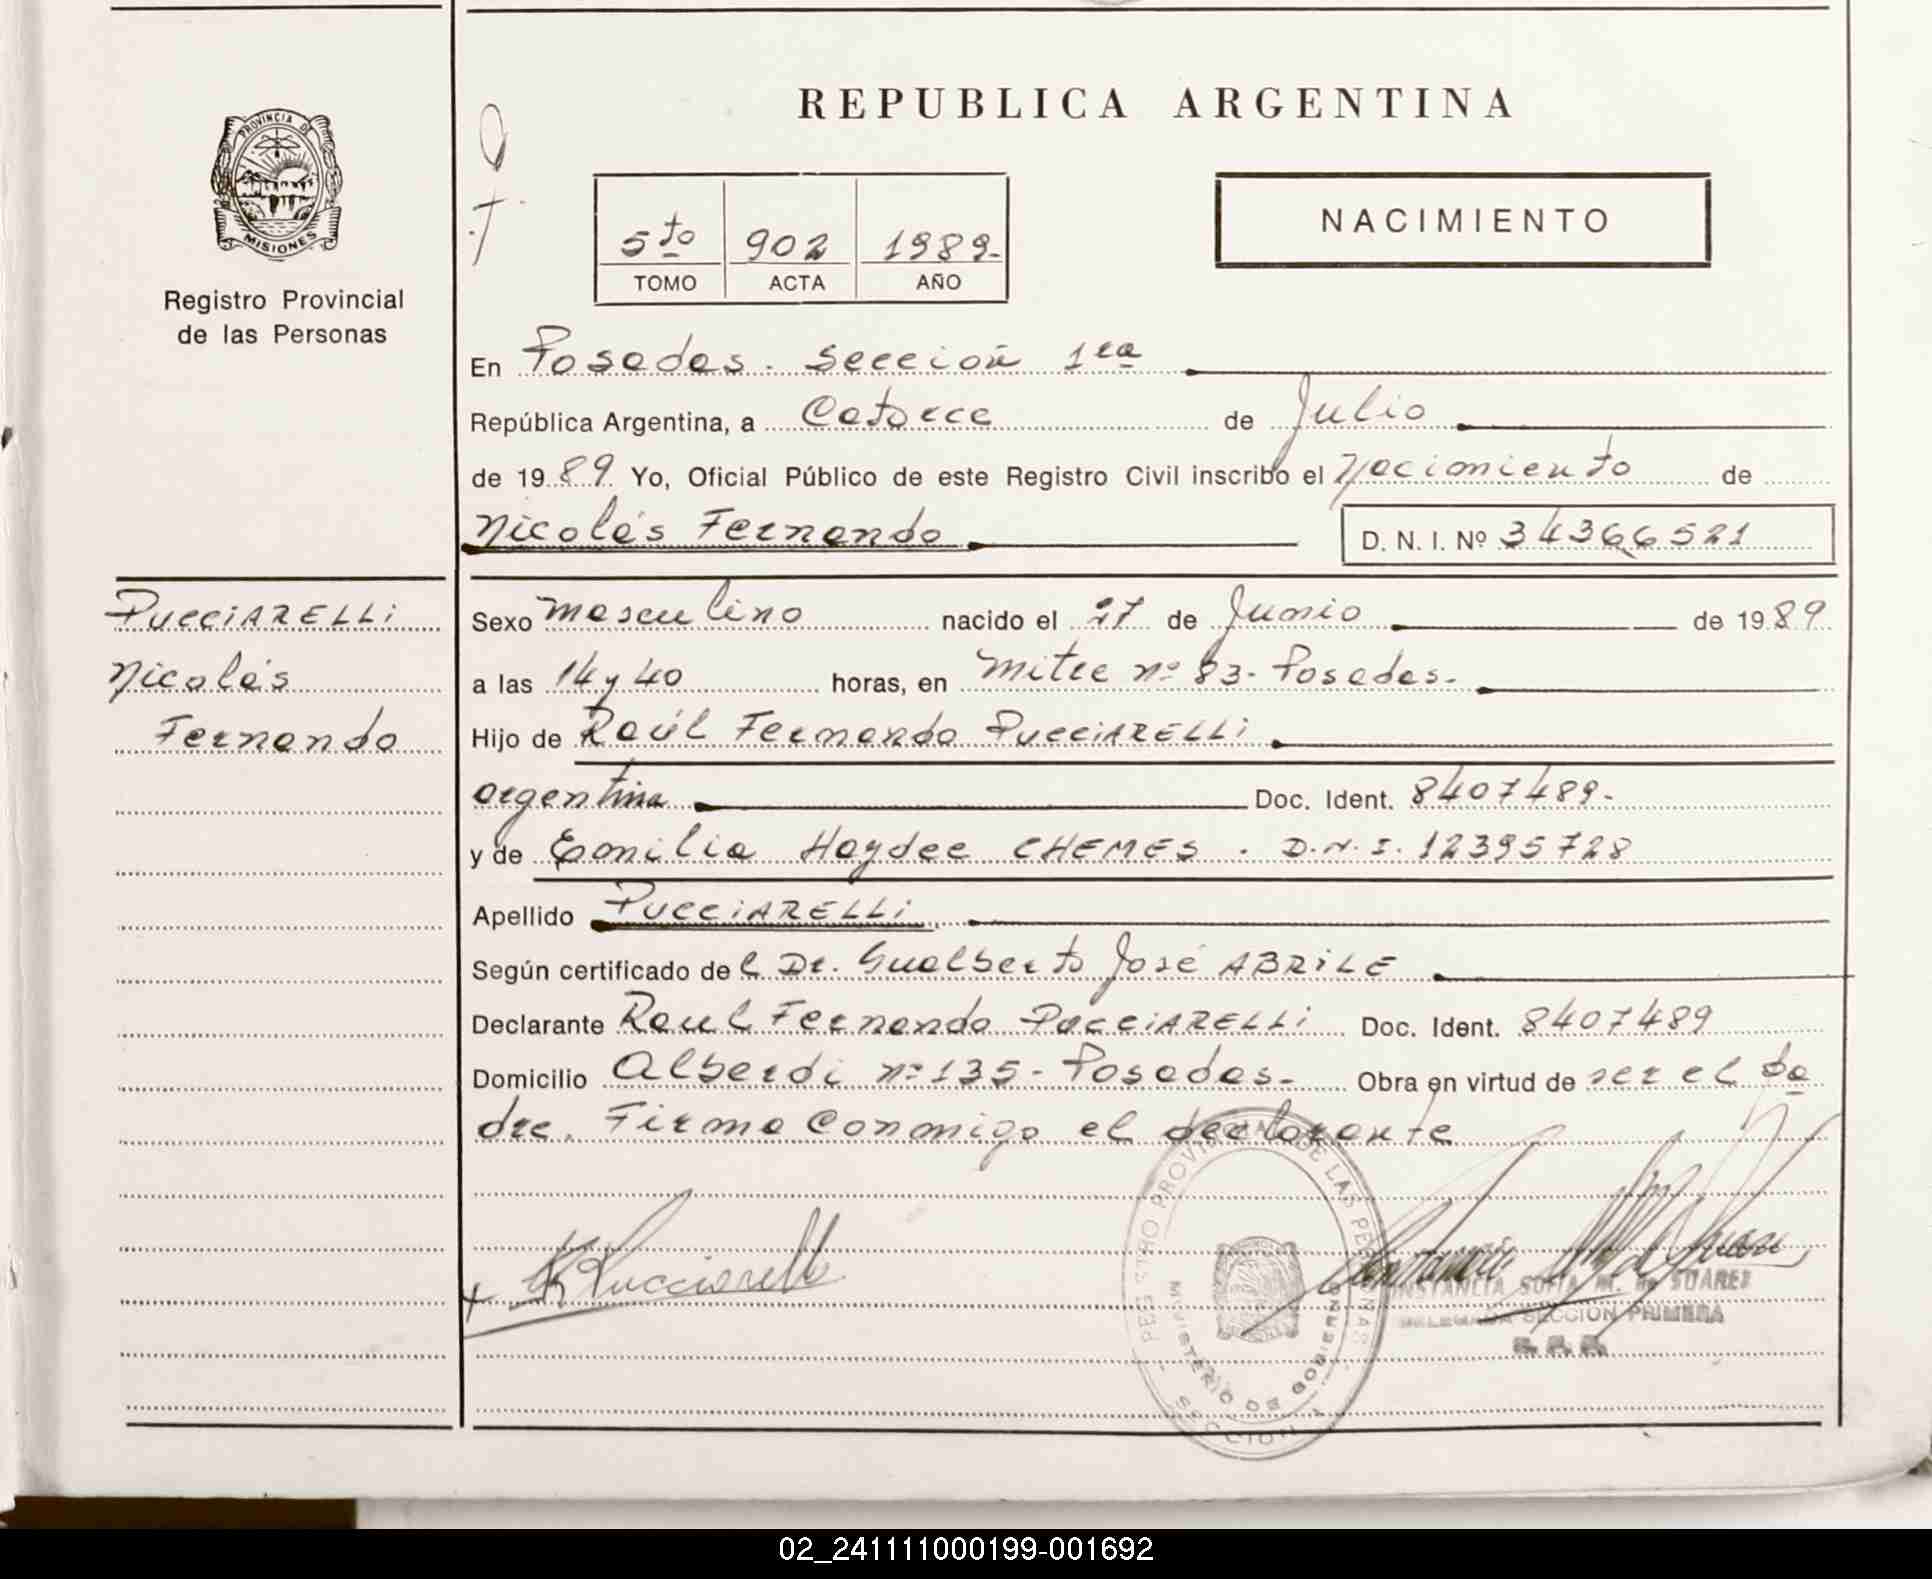 REPUBLICA ARGENTINA
PROVINCIA DE
MISIONES
Registro Provincial
de las Personas
5to 902 1989-
TOMO ACTA AÑO
NACIMIENTO
En Posadas. Sección 1ra
República Argentina, a Catorce de Julio
de 1989 Yo, Oficial Público de este Registro Civil inscribo el Nacimiento de
Nicolás Fernando D. N. I. Nº 34366521
PUCCIARELLi
Nicolás
Fernando
Sexo masculino nacido el 27 de Junio de 1989
a las 14 y 40 horas, en Mitre nº 83- Posadas.
Hijo de Raúl Fernando PUCCIARELLi
argentina Doc. Ident. 8407489-
y de Emilia Haydee CHEMES. D.N.I. 12395728
Apellido PUCCIARELLi
Según certificado del Dr. Gualberto José ABRILE
Declarante Raul Fernando PUCCIARELLi Doc. Ident. 8407489
Domicilio Alberdi nº 135- Posadas- Obra en virtud de ser el pa
dre. Firma conmigo el declarante
REGISTRO PROVINCIAL DE LAS PERSONAS
MINISTERIO DE GOBIERNO
SECCION 1
R Pucciarelli
CONSTANCIA SOFIA M. de SUAREZ
DELEGADA SECCION PRIMERA
02_241111000199-001692